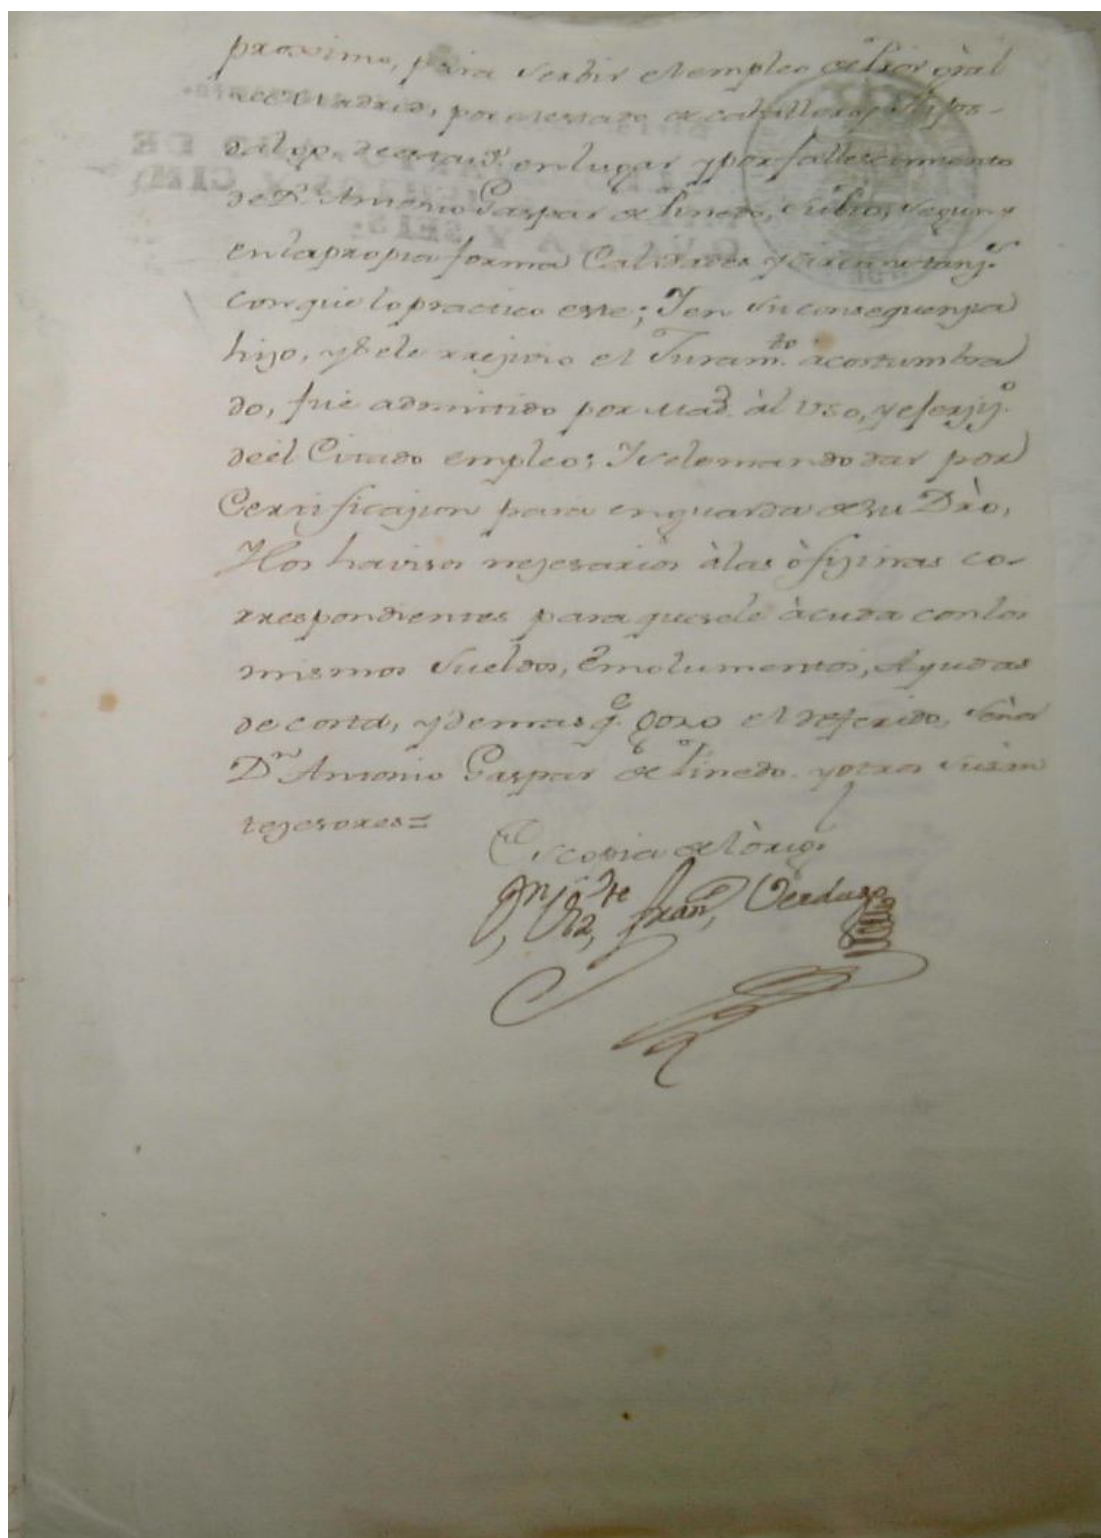 proximo, para serbir el empleo de Prior gràl
por el estado de caballeros hijos-
dalgo, de esta en lugar y por fallescimiento
de Dn. Antonio Gaspar de Pinedo, su tio, segun y
en la propia forma Calidades y
con que lo practico este; Y en su consequenzia
hizo, y se le rrezivio el Juramto. acostumbra
do, fue admitido por Mad. àl uso, y
de èl Citado empleo; Y se le mando dar por
Certificazion para en guarda de su Dr̃o,
Y los havisos nezesarios à las òfizinas co-
rrespondientes para que se le àcuda con los
mismos sueldos, Emolumentos, Ayudas
de costa, y demas qe. gozo el referido, Señor
Dn Antonio Gaspar de Pinedo y otros su an
tezesores =
Es copia de l òrigl.
Fran, Verdugo